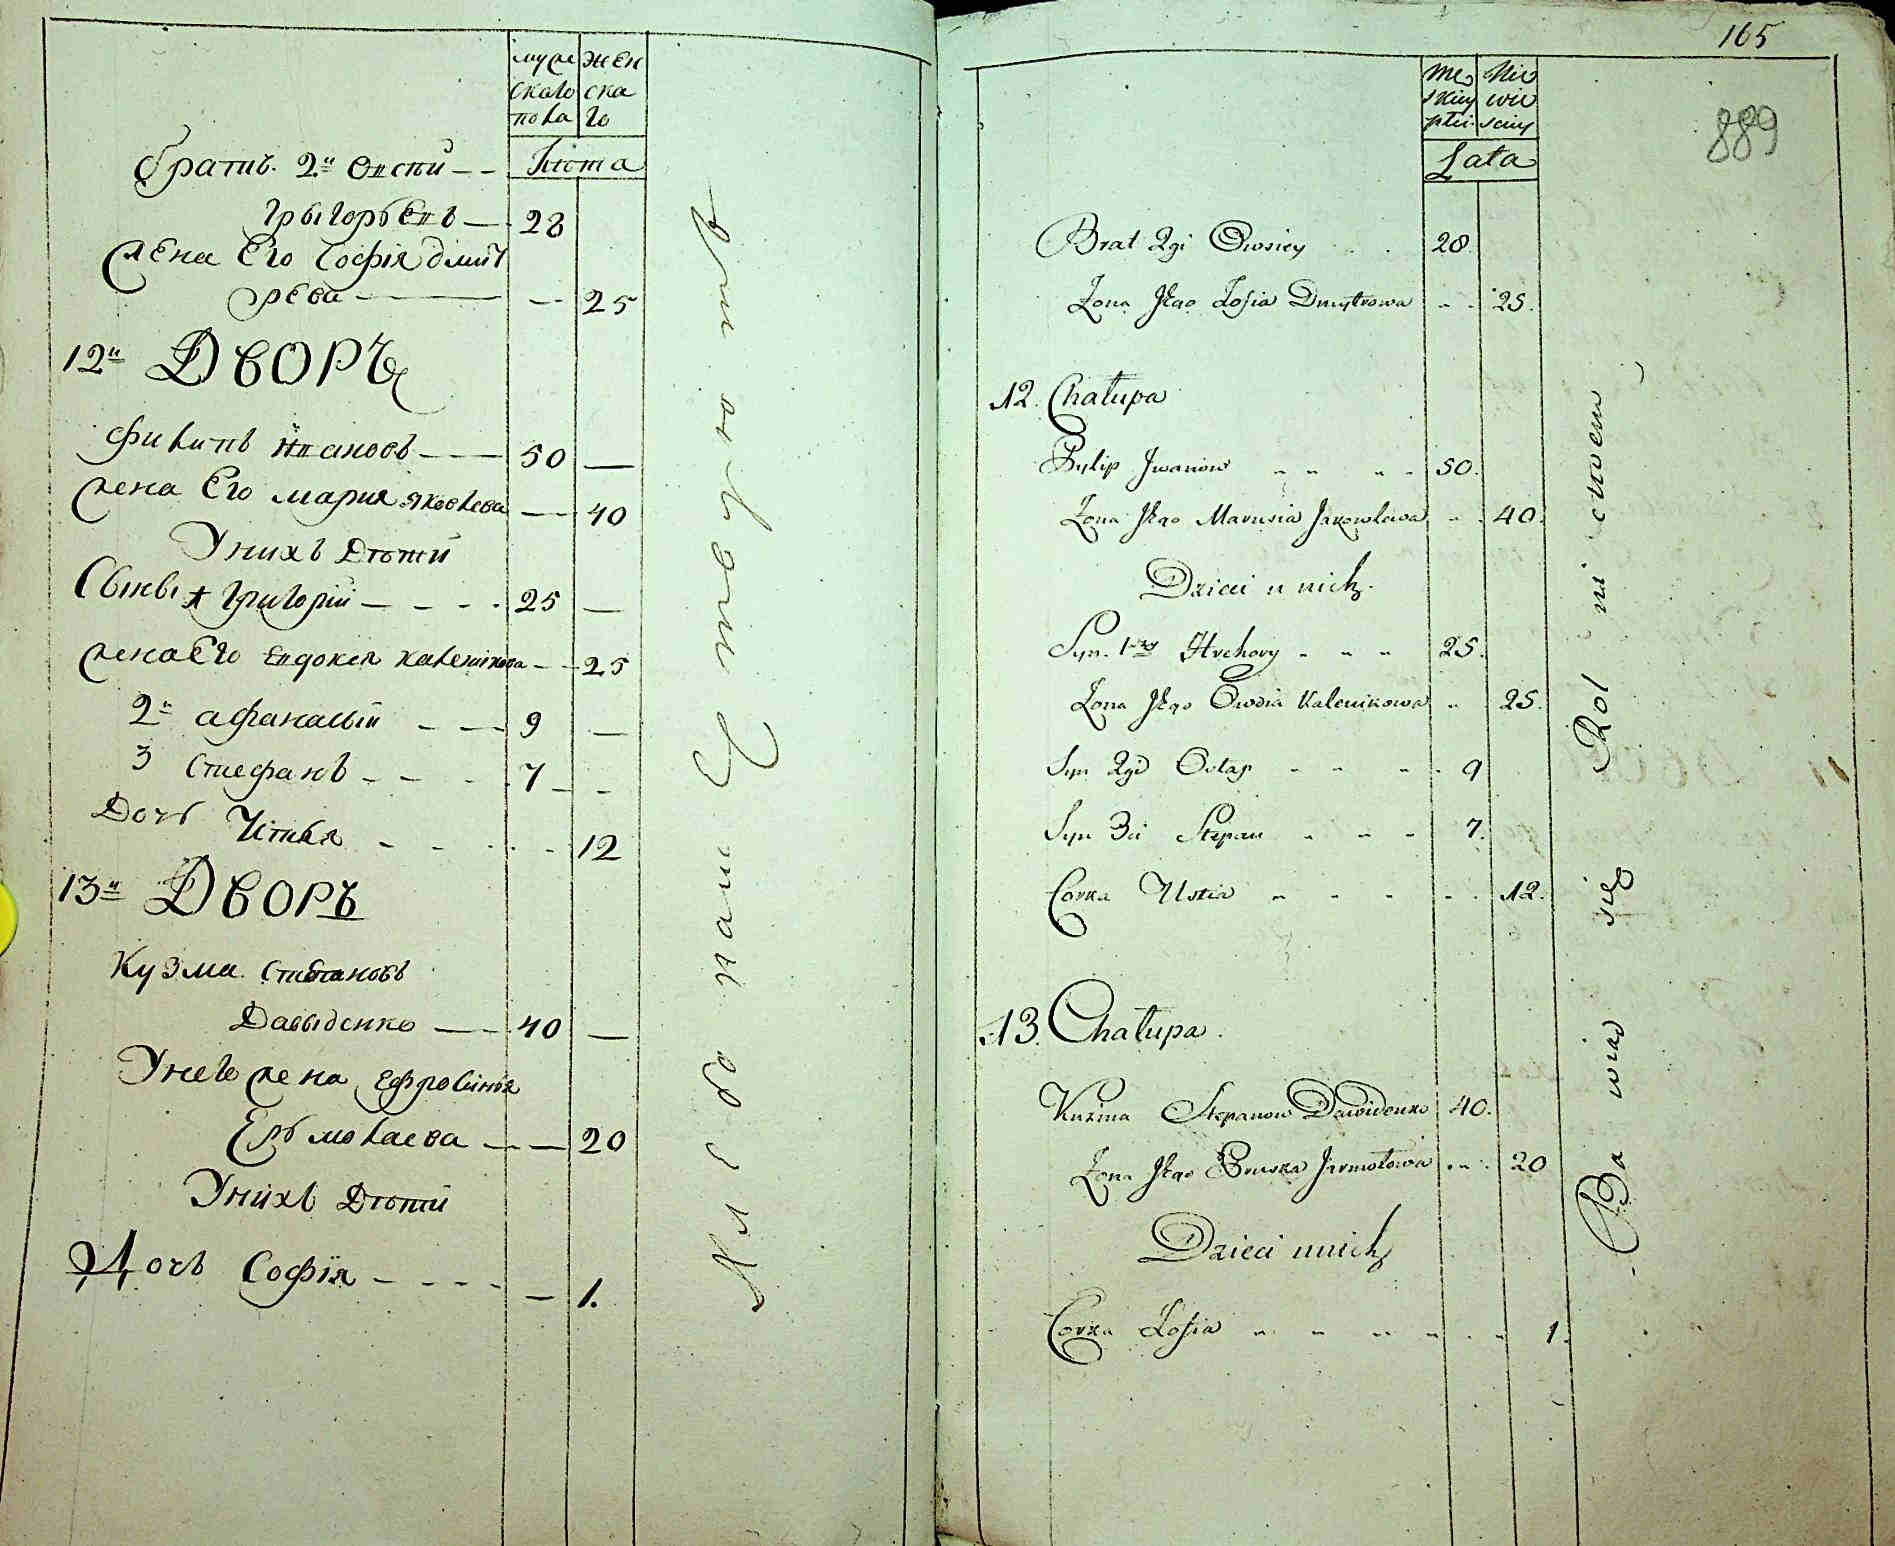 муже жен
скаго ска
пола го
братъ 2й Овсѣй
Лѣта
Григорьевъ 28
жена Его Софія дмит
рева 25
12й ДВОРЪ
Филипъ Ивановъ 50
жена Его мария яковлева 40
Унихъ Дѣтей
Сынъ 1 Григорій 25
жена Его Евдокея каленикова 25
2й афанасій 9
3 Стефанъ 7
Дочь Устья 12
13й ДВОРЪ
Кузма Степановъ
Давыденко 40
Унего жена Ефросинья
Ермолаева 20
Унихъ Дѣтей
Дочь Софія 1.
Хлебопашествуютъ
165
889
Mę Nie
skiey wie
płci sciey
Lata
Brat 2gi Owsiey 28.
Zona Jego Zofia Dmytrowa 25.
12. Chałupa
Pylip Jwanow 50.
Zona Jego Marusia Jakowlewa 40.
Dzieci u nich.
Syn 1szy Hrehory 25.
Zona Jego Owdia Kalenikowa 25.
Syn 2gi Ostap 9
Syn 3ci Stepan 7.
Corka Ustia 12.
13. Chałupa.
Kuzma Stepanow Dawidenko 40.
Zona Jego Pruska Jarmołowa 20
Dzieci unich
Corka Zofia 1.
Bawią się Rolnictwem